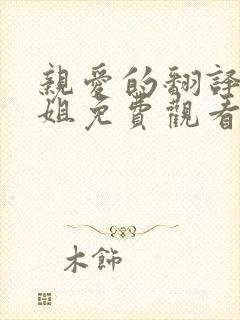 親愛的翻譯
姐免費觀看
木飾